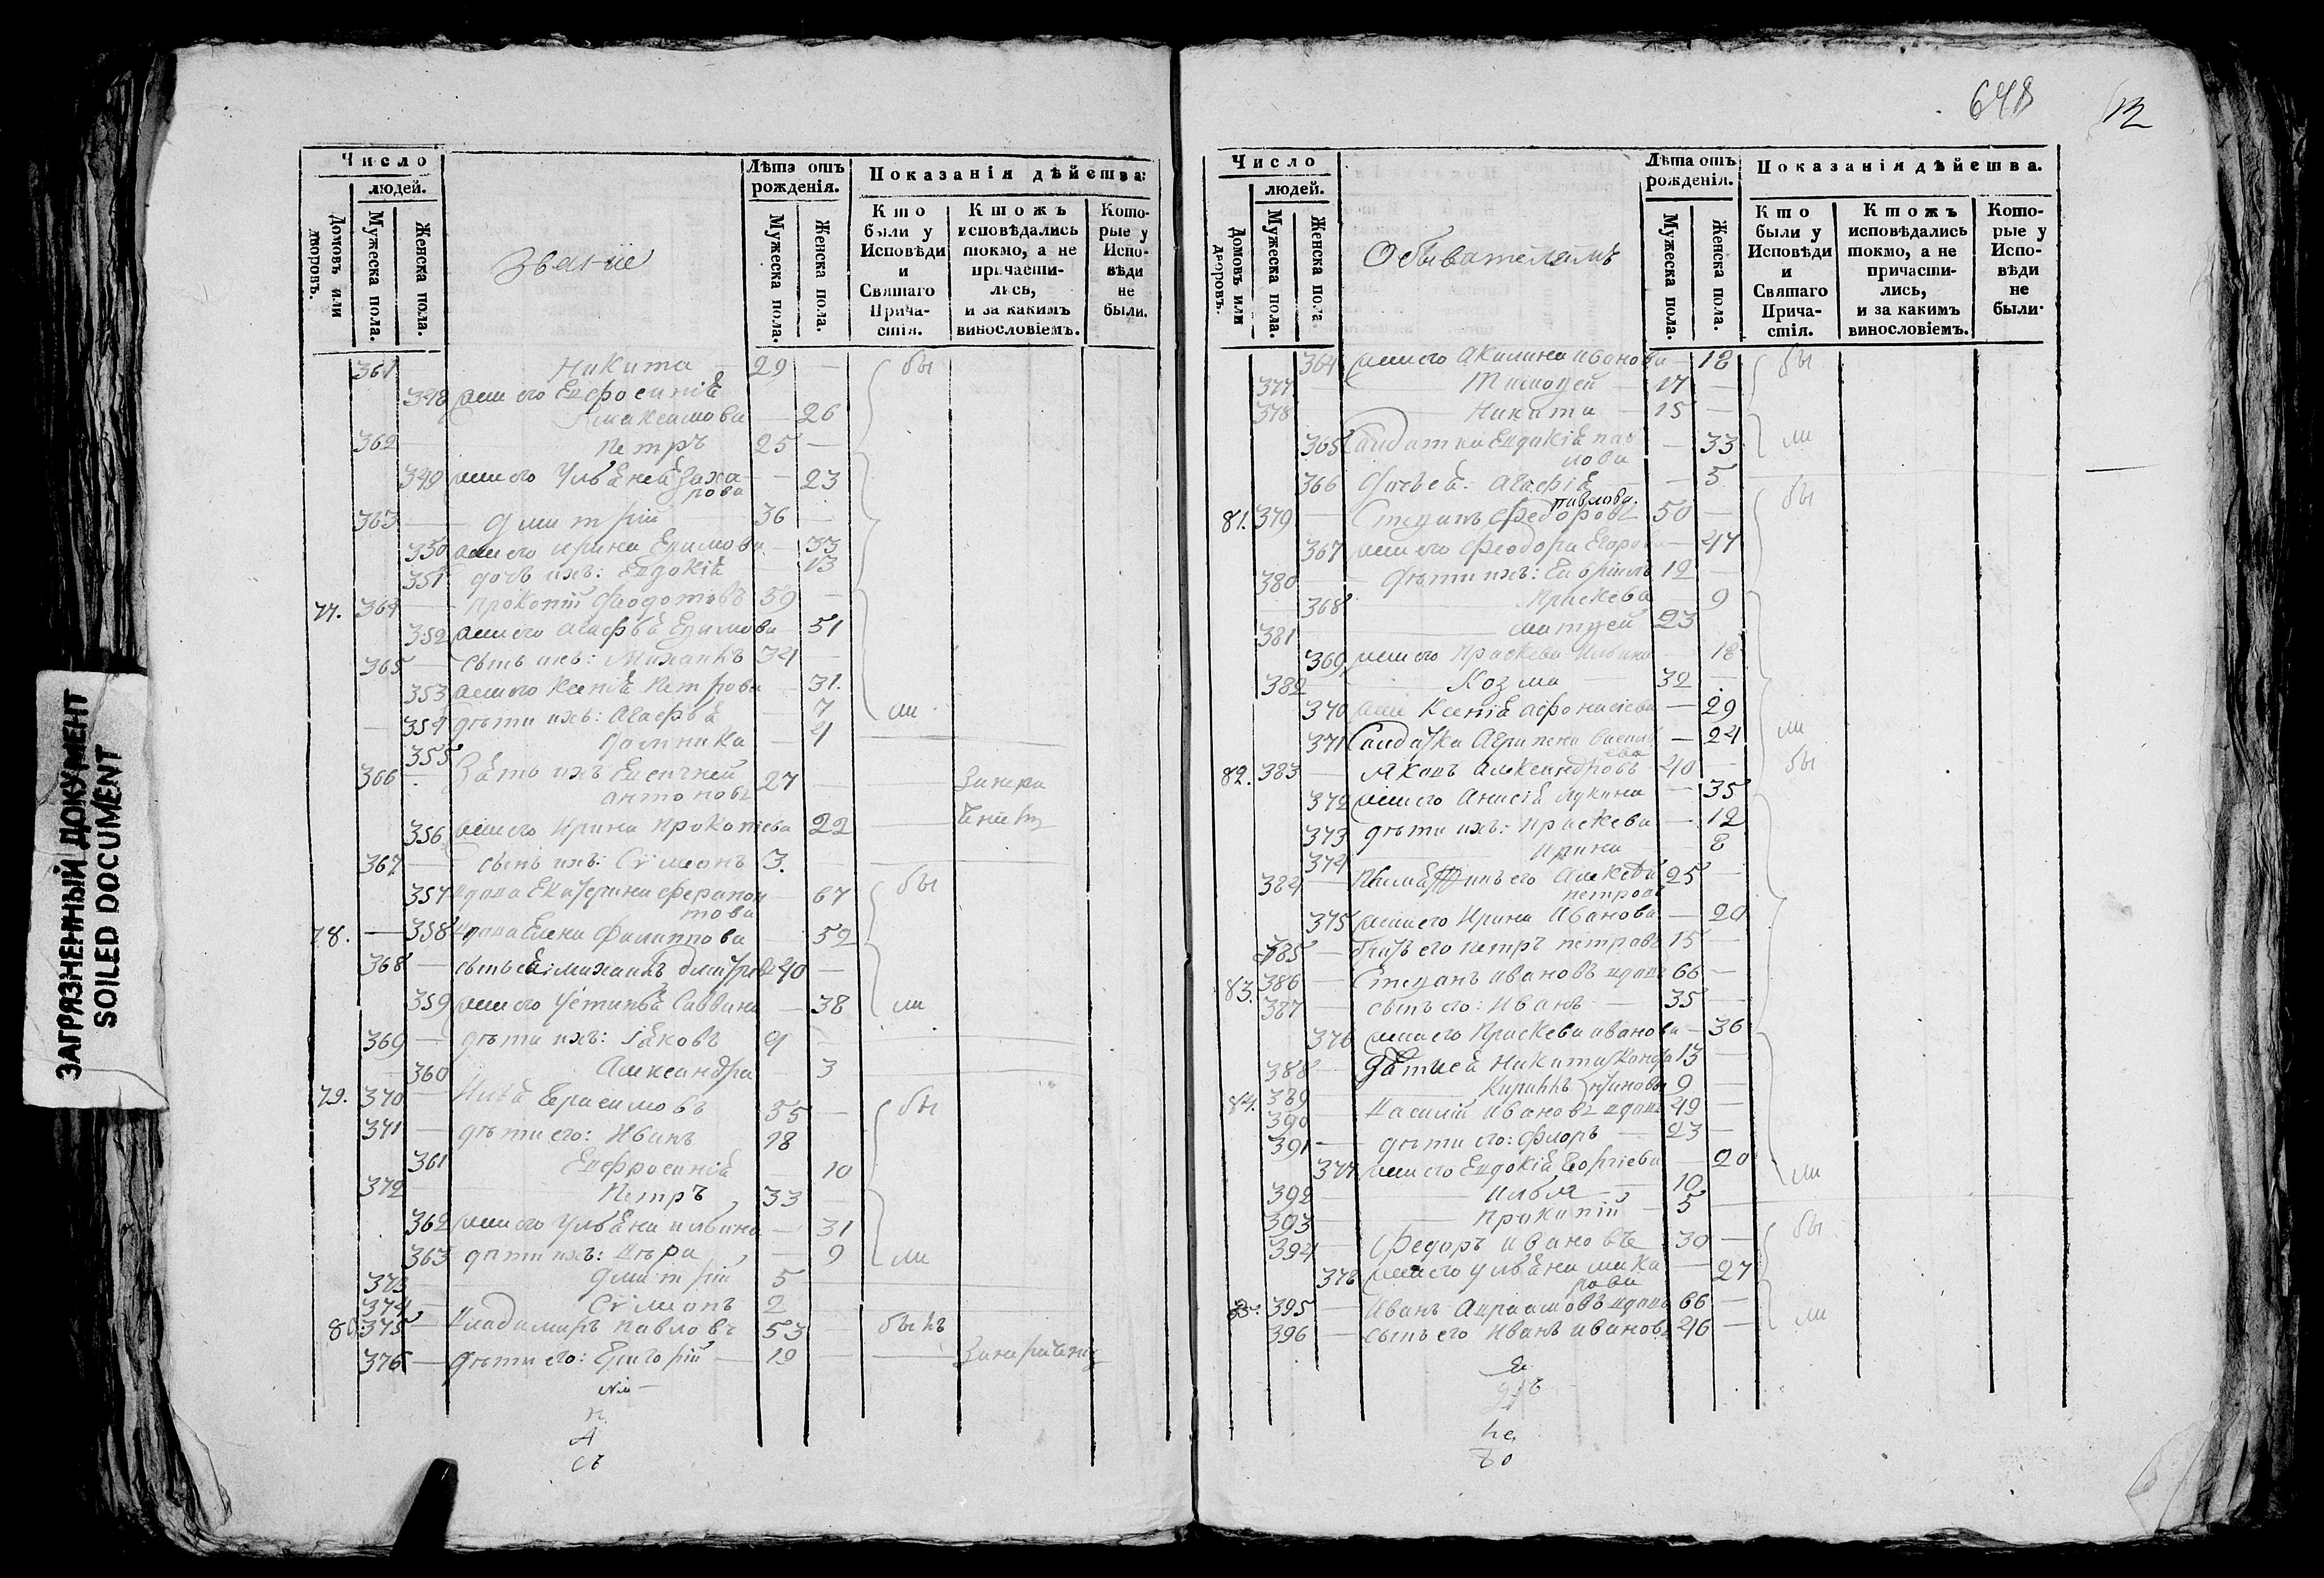 648
Число
людей.
Домовъ или дворовъ.
Мужеска пола.
Женска пола.
Званіе
Лѣта отъ рожденія.
Мужеска пола.
Женска пола.
Показанія дѣйства:
Кто были у Исповѣди и Святаго Причастія.
Ктожъ исповѣдались токмо, а не причастились, и за какимъ винословіемъ.
Которые у Исповѣди не были.
361 Никита 29 бы
348 жена его Евфросинія
Максимова 26
362 Петръ 25
349 жена его Ульянея Заха
рова 23
363 Дмитрій 36
350 жена его Ирина Ефимова 33
351 дочь ихъ: Евдокія 13
77. 364 Прокопій Федотовъ 59
352 жена его Агафья Ефимова 51
365 сынъ ихъ: Михаилъ 34
353 жена его Ксенія Петрова 31.
354 дѣти ихъ: Агафья 7 ли
355 4
366 Зять ихъ Евсигней
Антоновъ 27
356 жена его Ирина Прокопіева 22
367 сынъ ихъ: Сѵмеонъ 3.
357 вдова Екатерина Ферапон
това 67 бы
78. 358 вдова Елена Филиппова 52
368 сынъ ея: Михаилъ 40
359 жена его Устинья Саввина 38 ли
369 дѣти ихъ: Іаковъ 9
360 Александра 3
79. 370 Герасимовъ 55 бы
371 дѣти его: Иванъ 18
361 Евфросинія 10
372 Петръ 33
362 жена его Ульяна Ильина 31
363 дѣти ихъ: Вѣра 9 ли
373 Дмитрій 5
374 Сѵмеонъ 2
80. 375 Владимиръ Павловъ 53 былъ
376 дѣти его: Григорій 19
Число
людей.
Домовъ или дворовъ.
Мужеска пола.
Женска пола.
Обывателямъ
Лѣта отъ рожденія.
Мужеска пола.
Женска пола.
Показанія дѣйства.
Кто были у Исповѣди и Святаго Причастія.
Ктожъ исповѣдались токмо, а не причастились, и за какимъ винословіемъ.
Которые у Исповѣди не были.
364 жена его Акилина Иванова 18 бы
377 Тимофей 17
378 Никита 15
365 Салдатка Евдокія Пав
лова 33 ли
366 дочь ея: Агафія 5
Павлова.
81. 379 Степанъ Федоровъ 50 бы
367 жена его Феодора Егорова 47
380 дѣти ихъ: Гавріилъ 12
368 Праскева 9
381 Матвей 23
369 жена его Праскева Ильина 18
382 Козма 32
370 жена Ксенія Афонасіева 29
371 Салдатка Агрипена Василь
ева 24 ли
82. 383 Яковъ Александровъ 40 бы
372 жена его Анисія Лукина 35
373 дѣти ихъ: Праскева 12
374 Ирина 8
384 его Алексей
Петровъ 25
375 жена его Ирина Иванова 20
385 братъ его Петръ Петровъ 15
83. 386 Степанъ Ивановъ вдовъ 66
387 сынъ его: Иванъ 35
376 жена его Праскева Иванова 36
388 дѣти ея Никита 13
389 Кирилъ 9
84. 390 Василій Ивановъ вдовъ 49
391 дѣти его: Флоръ 23
377 жена его Евдокія Георгіева 20
392 Илья 10 ли
393 Прокопій 5
394 Федоръ Ивановъ 30 бы
378 жена его Ульяна Мака
рова 27
85. 395 Иванъ Авраамовъ вдовъ 66
396 сынъ его Иванъ Ивановъ 46 ли
ЗАГРЯЗНЕННЫЙ ДОКУМЕНТ
SOILED DOCUMENT